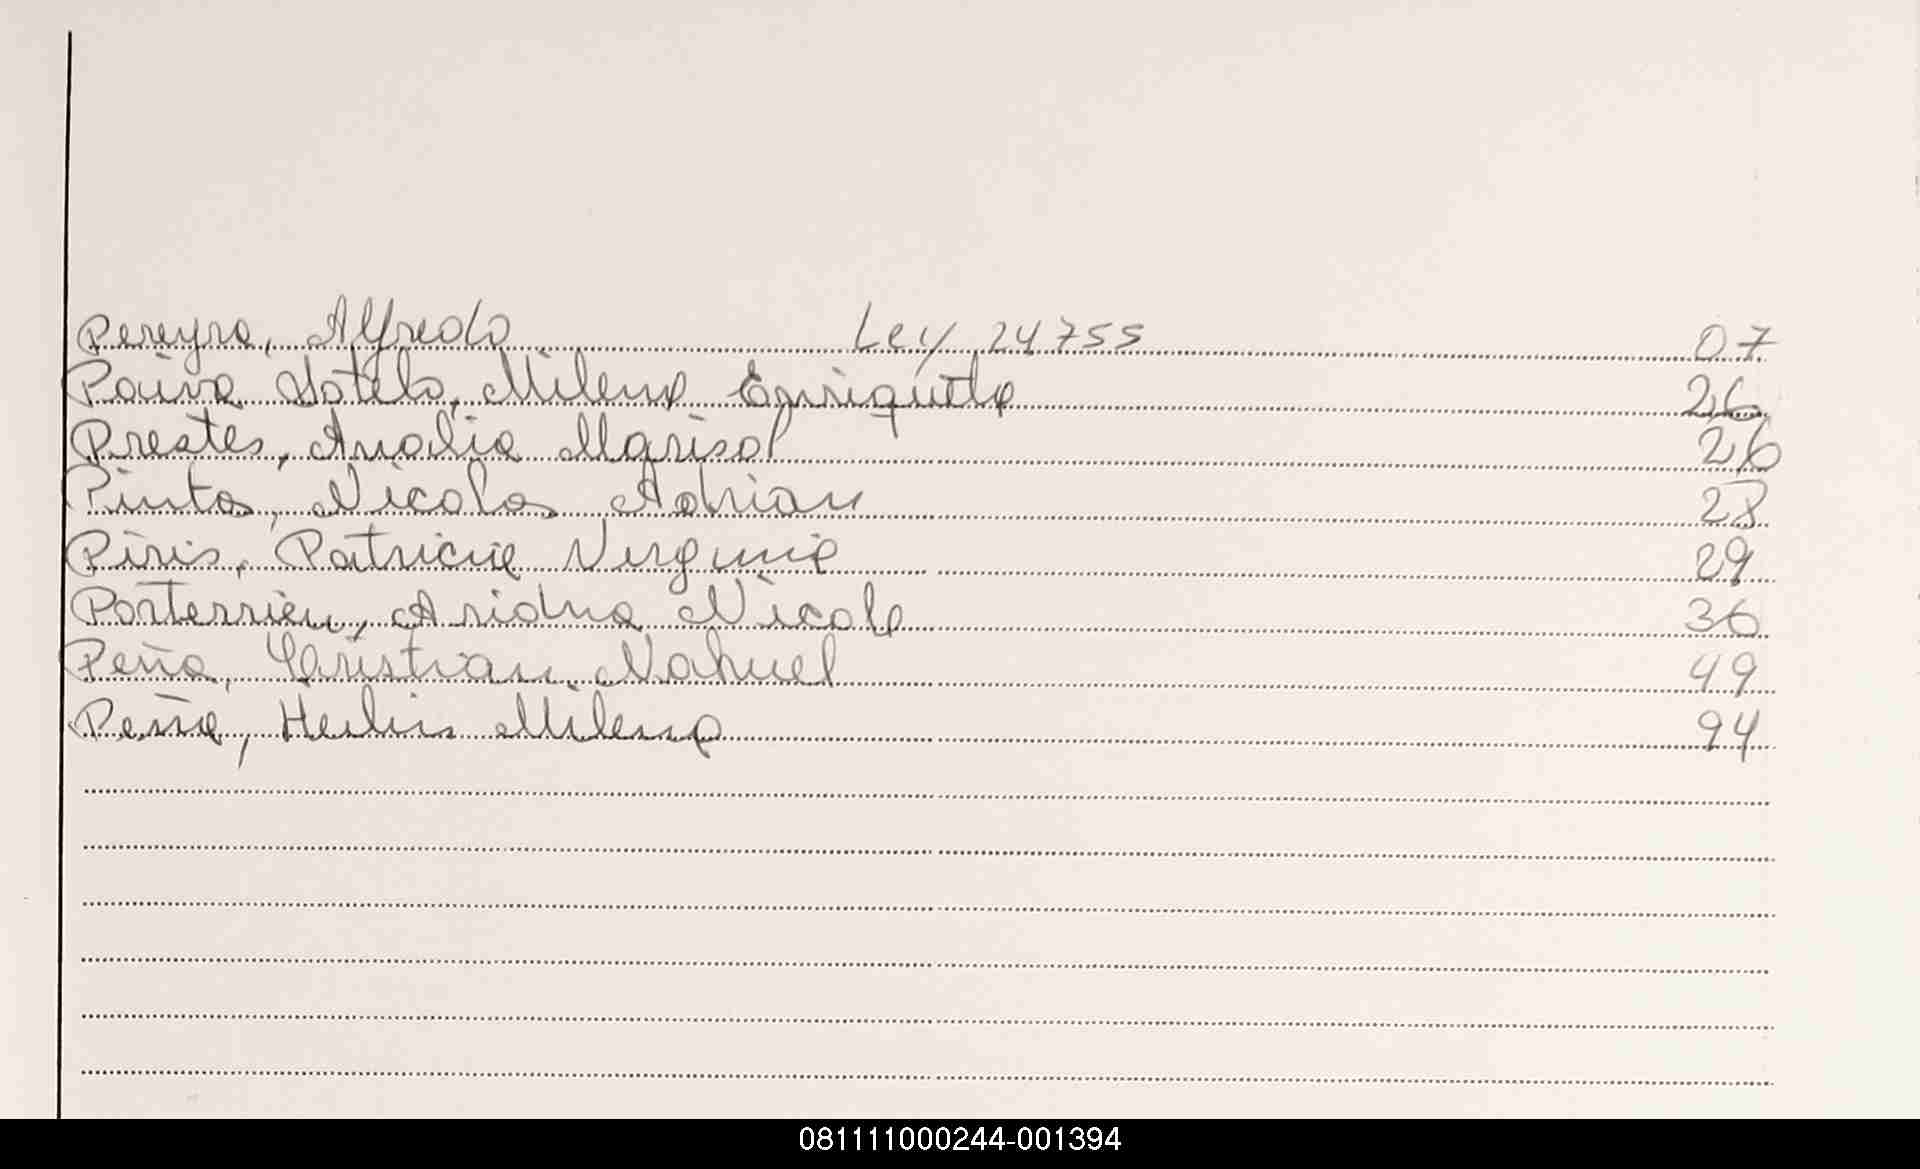 Pereyra, Alfredo Ley 24755 07
Paiva Sotelo, Milena Enriqueta 26
Prestes, Analia Marisol 26
Pintos, Nicolas Adrian 28
Piris, Patricia Virginia 29
Porterrieu, Ariadna Nicole 36
Peña, Christian Nahuel 49
Peña, Milena 94
081111000244-001394